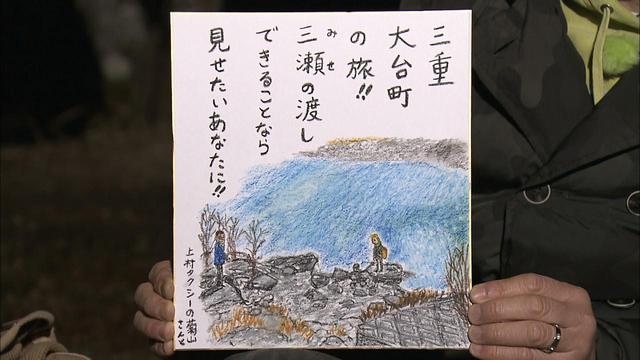 三重
大台町
の旅!!
三瀬の渡し
みせ
できることなら
見せたいあなたに!!
上村タクシーの菊山
さんと